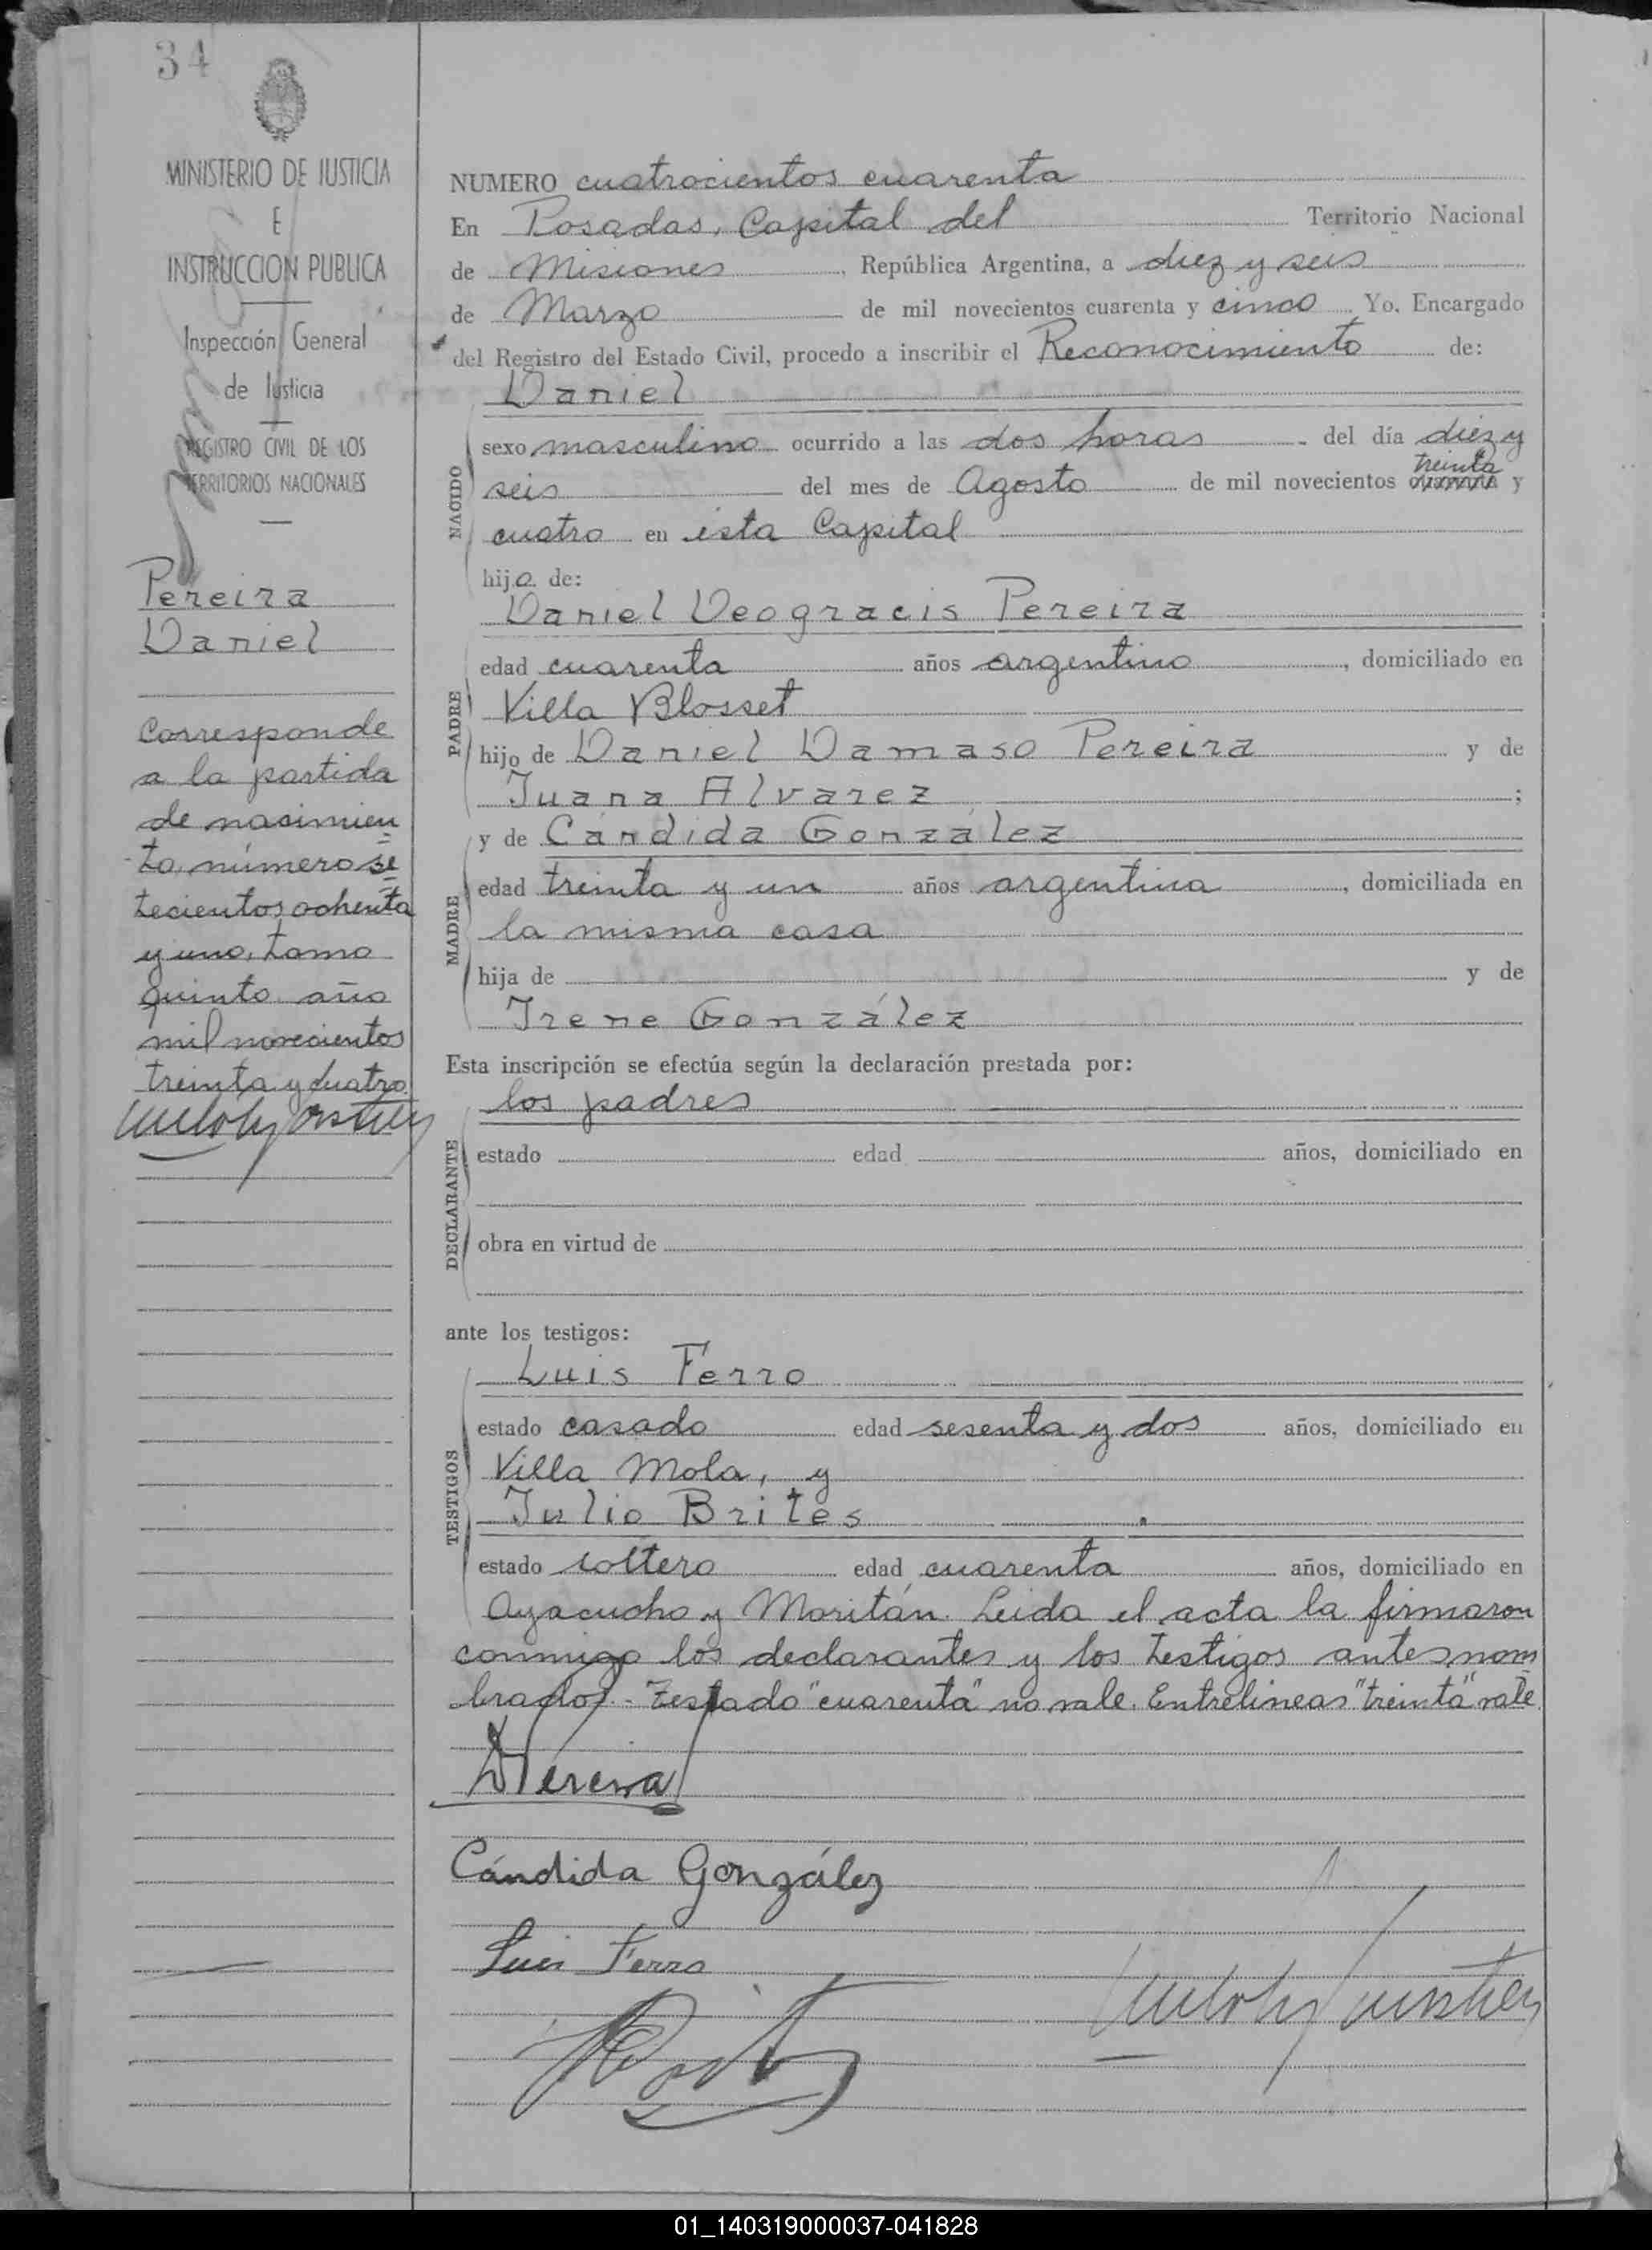 34
MINISTERIO DE JUSTICIA
E
INSTRUCCION PUBLICA
Inspección General
de Justicia
REGISTRO CIVIL DE LOS
TERRITORIOS NACIONALES
Pereira
Daniel
Corresponde
a la partida
de nacimien
to, número se
tecientos ochenta
y uno, tomo
quinto año
mil novecientos
treinta y cuatro
NUMERO cuatrocientos cuarenta
En Posadas, Capital del Territorio Nacional
de Misiones, República Argentina, a diez y seis
de Marzo de mil novecientos cuarenta y cinco Yo, Encargado
del Registro del Estado Civil, procedo a inscribir el Reconocimiento de:
Daniel
NACIDO
sexo masculino ocurrido a las dos horas del día diez y
treinta
seis del mes de Agosto de mil novecientos cuarenta y
cuatro en ésta Capital
hijo de:
Daniel Deogracis Pereira
PADRE
edad cuarenta años argentino, domiciliado en
Villa Blosset
hijo de Daniel Damaso Pereira y de
Juana Alvarez;
MADRE
y de Cándida González
edad treinta y un años argentina, domiciliada en
la misma casa
hija de y de
Irene González
Esta inscripción se efectúa según la declaración prestada por:
los padres
DECLARANTE
estado edad años, domiciliado en
obra en virtud de
ante los testigos:
Luis Ferro
TESTIGOS
estado casado edad sesenta y dos años, domiciliado en
Villa Mola, y
Julio Brites
estado soltero edad cuarenta años, domiciliado en
Ayacucho y Moritán. Leida el acta la firmaron
conmigo los declarantes y los testigos antes nom
brados.- Testado "cuarenta" no vale. Entrelineas "treinta" vale
DPereira
Cándida González
Luis Ferro
01_140319000037-041828